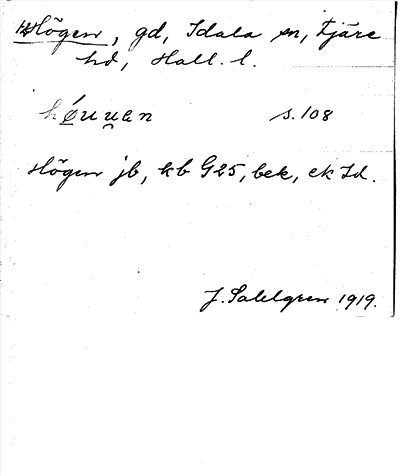 Högen, gd, Idala sn, Fjäre
hd, Hall. l.
høuuen s. 108
Högen jb, kb G25, bek, ek Id.
J. Sahlgren 1919.